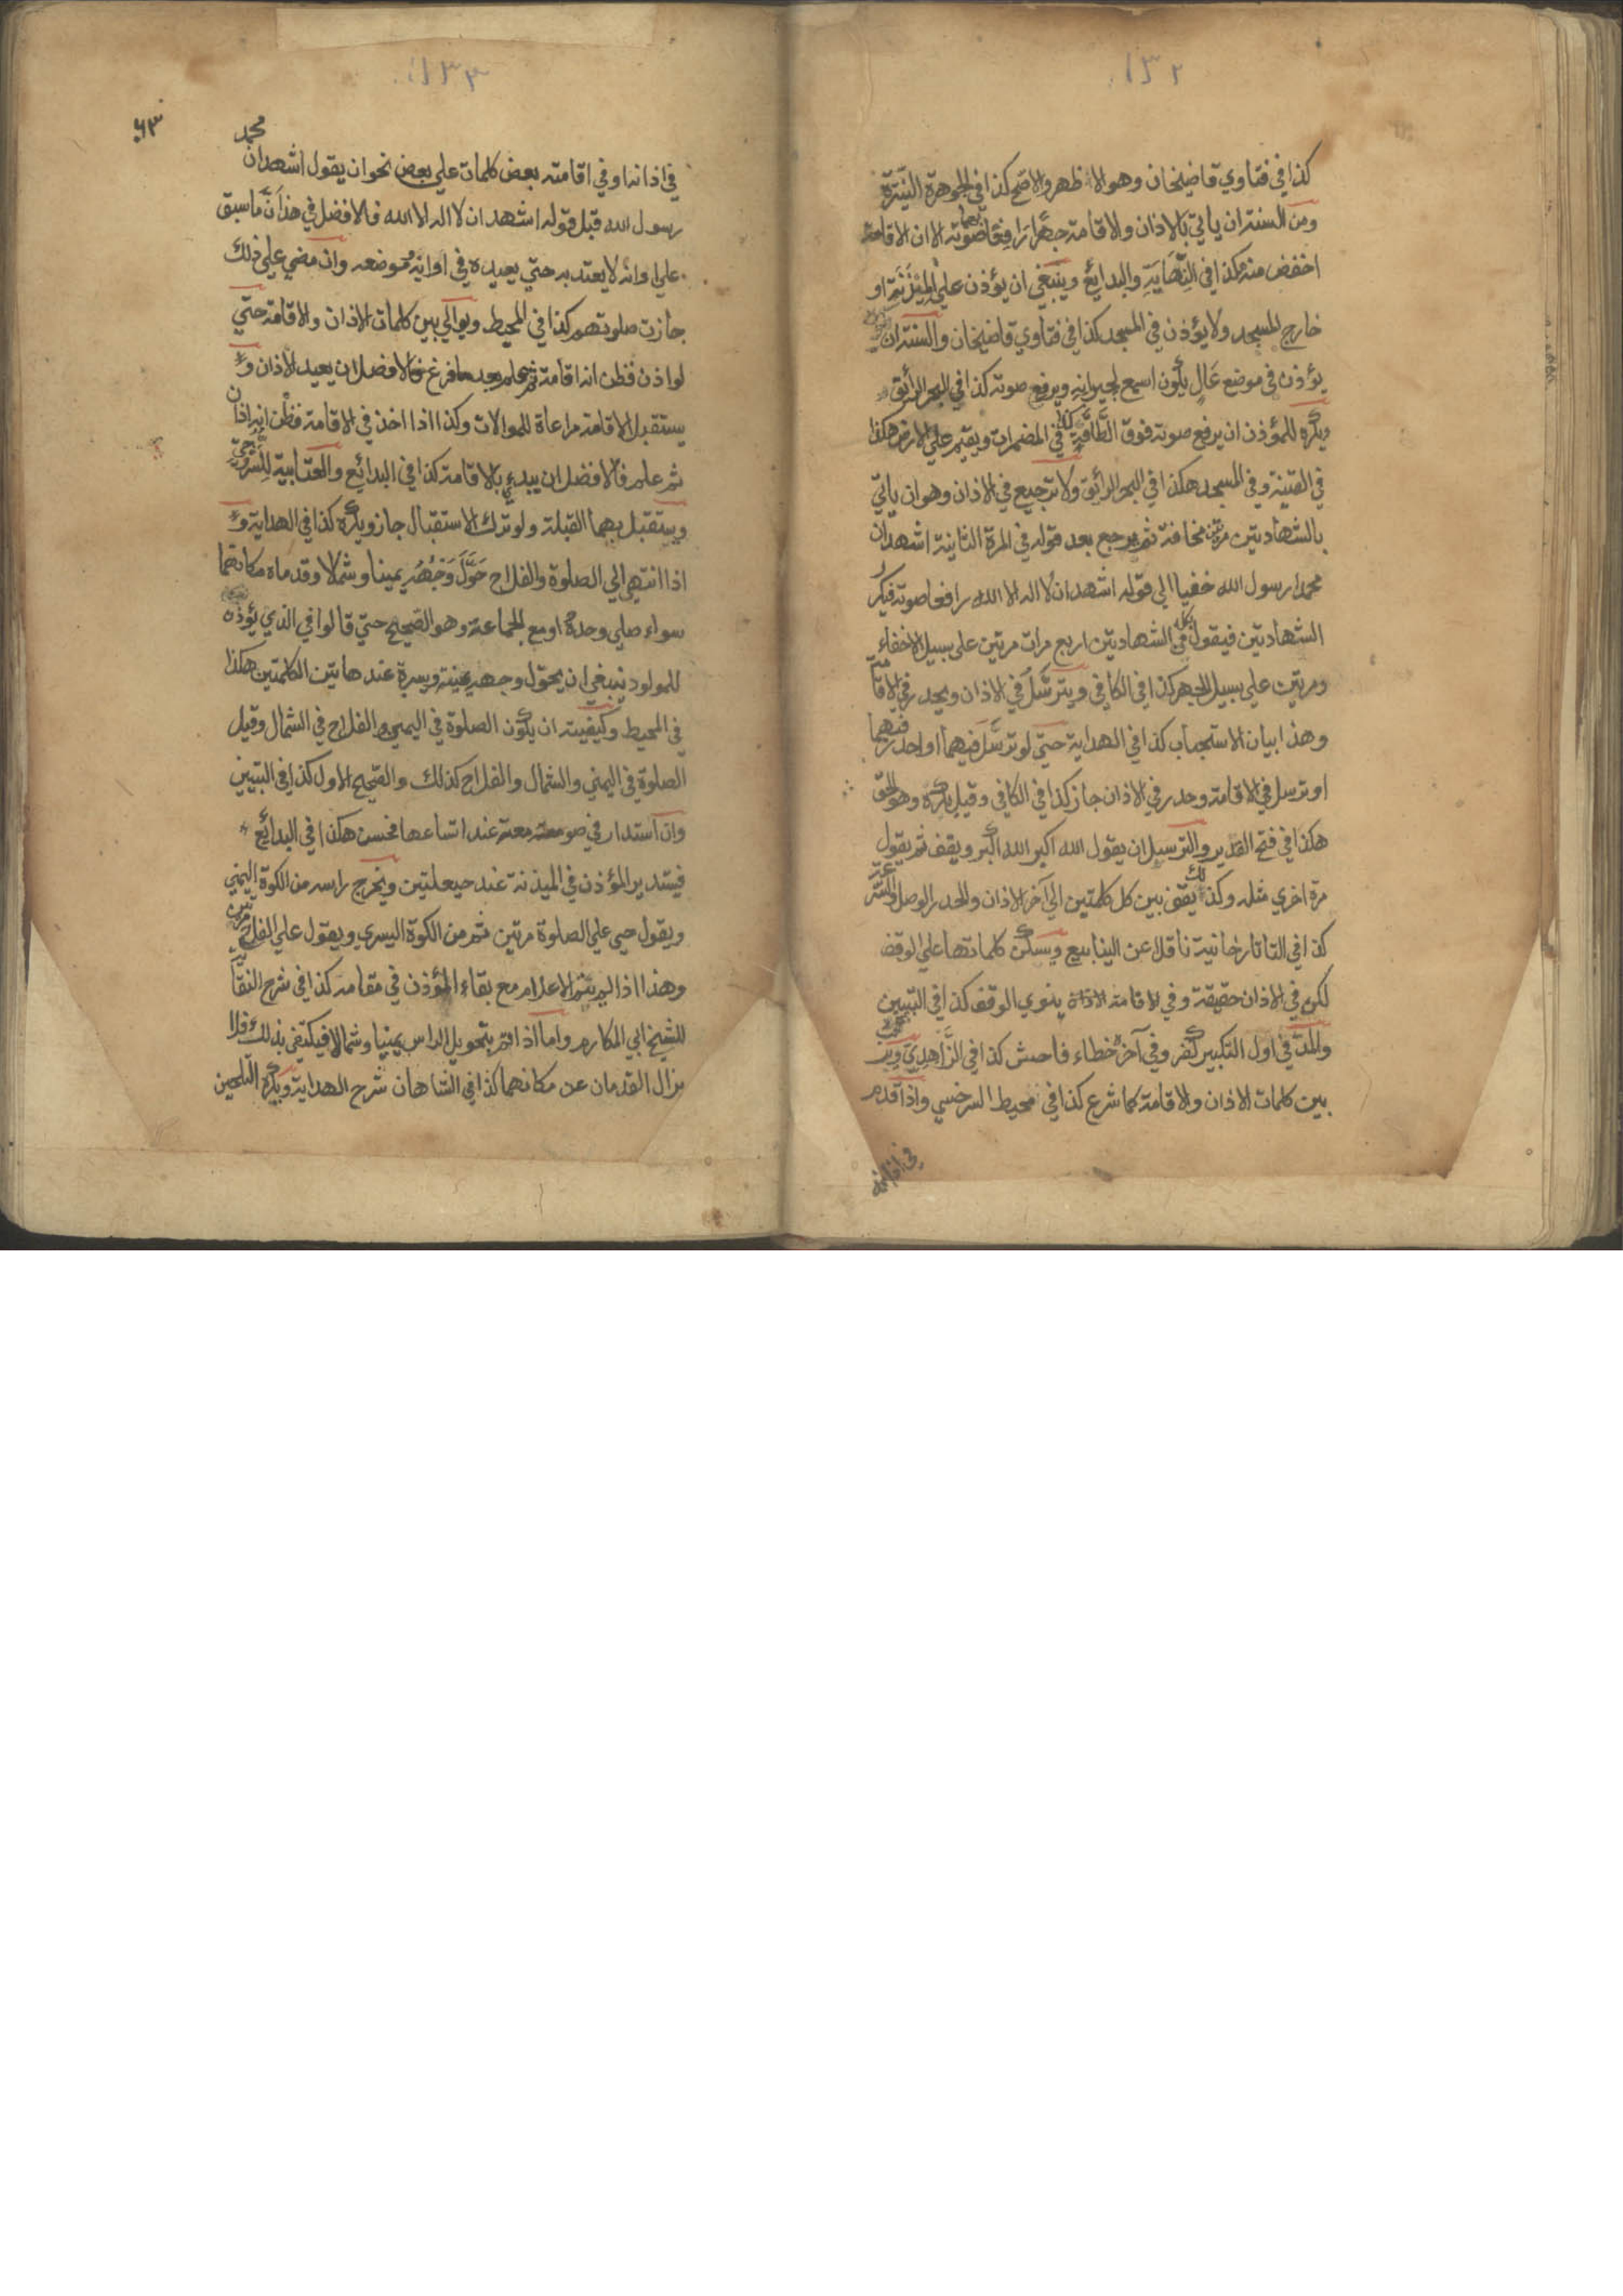 ١٣٢
كذا في فتاوي قاضيخان وهو الاظهر والاصح كذا في الجوهرة النيّرة
ومن السنة ان ياتي بالاذان والاقامة جهرًا رافعًا بهما صوته الا ان الاقامة
اخفض منه هكذا في النهاية والبدائع وينبغي ان يؤذن على المئذنة او
خارج المسجد ولا يؤذن في المسجد كذا في فتاوي قاضيخان والسنة ان
يؤذن في موضع عال يكون اسمع لجيرانه ويرفع صوته كذا في البحر الرائق
ويكره للمؤذن ان يرفع صوته فوق الطاقة كذا في المضمرات ويقيم علي الارض هكذا
في القنية وفي المسجد هكذا في البحر الرائق ولا ترجيع في الاذان وهو ان ياتي
بالشهادتين مرتين مخافتة ثم يرجع بعد قوله في المرة الثانية اشهد ان
محمدا رسول الله خفيا الي قوله اشهد ان لا اله الا الله رافعا صوته فيكرر
الشهادتين فيقول كل في الشهادتين اربع مرات مرتين على سبيل الاخفاء
ومرتين علي سبيل الجهر كذا في الكافي ويترسّل في الاذان ويحدر في الاقامة
وهذا بيان الاستحباب كذا في الهداية حتي لو ترسّل فيهما او احدر فيهما
او ترسل في الاقامة وحدر في الاذان جاز كذا في الكافي وقيل يكره وهو الحق
هكذا في فتح القدير والترسيل ان يقول الله اكبر الله اكبر ويقف ثم يقول
مرة اخري مثله وكذلك يقف بين كل كلمتين الي آخر الاذان والحدر الوصل والسرعة
كذا في التاتارخانية ناقلا عن الينابيع ويسكن كلماتها علي الوقف
لكن في الاذان حقيقة وفي الاقامة ينوي الوقف كذا في التبيين
والمدّ في اول التكبير كفر وفي آخره خطاء فاحش كذا في الزاهدي ويرتب
بين كلمات الاذان والاقامة كما شرع كذا في محيط السرخسي واذا قدم
في اذانه
١٣٣
٦٣
في اذانه او في اقامته بعض كلمات علي بعض نحو ان يقول اشهد ان محمد
رسول الله قبل قوله اشهد ان لا اله الا الله فالافضل في هذا ان ما سبق
علي اوانه لا يعتد به حتي يعيده في اوانه وموضعه وان مضي علي ذلك
جازت صلوتهم كذا في المحيط ويوالي بين كلمات الاذان والاقامة حتّي
لو اذن فظن انه اقامة ثم علم بعد ما فرغ فالافضل ان يعيد الاذان و
يستقبل الاقامة مراعاة للموالات وكذا اذا اخذ في الاقامة فظن انه اذان
ثم علم فالافضل ان يبدئ بالاقامة كذا في البدائع والعتابية للسروجي
ويستقبل بهما القبلة ولو ترك الاستقبال جاز ويكره كذا في الهداية و
اذا انتهي الي الصلوة والفلاح حَوَّلَ وَجْهَهُ يمينا وشمالا وقدماه مكانهما
سواء صلي وحده او مع الجماعة وهو الصحيح حتي قالوا في الذي يؤذن
للمولود ينبغي ان يحول وجهه يمنة ويسرة عند هاتين الكلمتين هكذا
في المحيط وكيفيته ان يكون الصلوة في اليمين والفلاح في الشمال وقيل
الصلوة في اليمني والشمال والفلاح كذلك والصحيح الاول كذا في التبيين
وان استدار في صومعته عند اتساعها فحسن هكذا في البدائع
فيستدير المؤذن في الميذنة عند حيعلتين ويخرج راسه من الكوة اليمني
ويقول حي علي الصلوة مرتين ثم من الكوة اليسري ويقول علي الفلاح مرتين
وهذا اذا لم يتم الاعلام مع بقاء المؤذن في مقامه كذا في شرح النقاية
للشيخ ابي المكارم واما اذا تم بتحويل الراس يمينا وشمالا فيكتفي بذلك فلا
يزال القدمان عن مكانهما كذا في الشاهان شرح الهداية ويكره التلحين